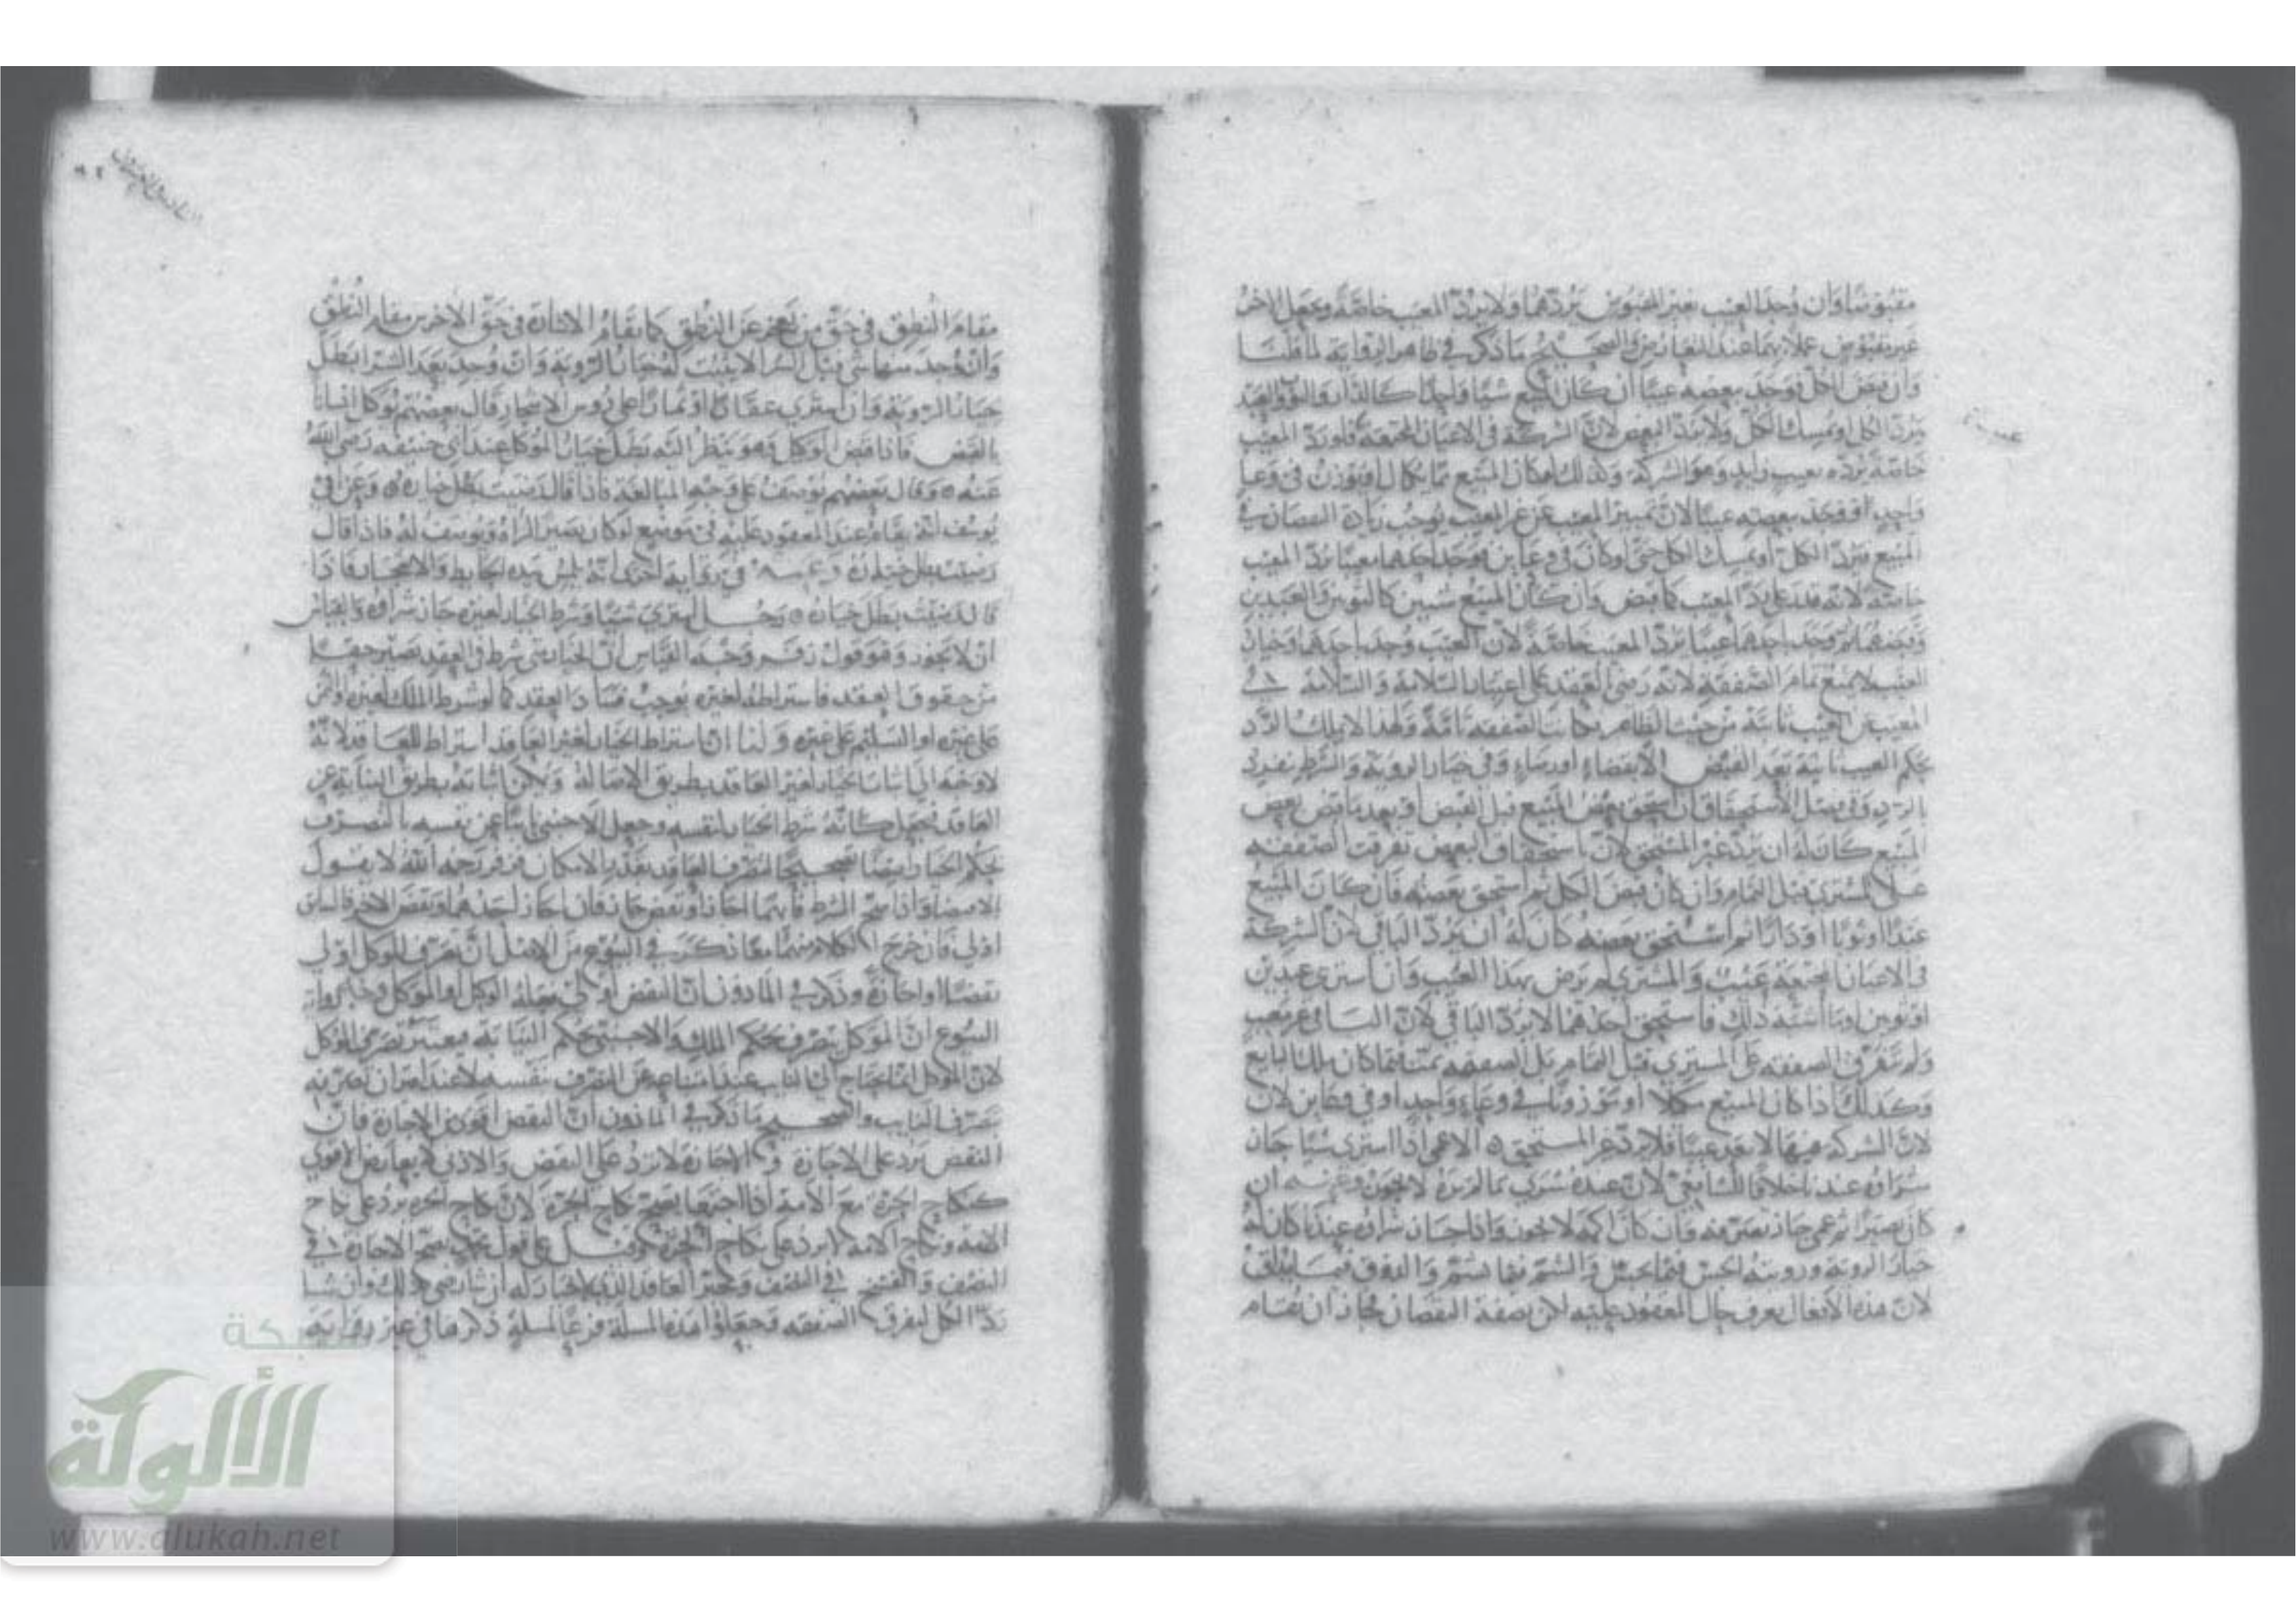 مقبوضا وان وجد العيب بغير المقبوض يردهما ولا يرد المعيب خاصة ويجعل الاخر
غير مقبوض عملا بهما عند التعارض والصحيح ما ذكر في ظاهر الرواية لما قلنا
وان قبض الكل فوجد ببعضه عيبا ان كان المبيع شيئا واحدا كالدار والثوب والعبد
يرد الكل او يمسك الكل ولا يرد البعض لان الشركة في الاعيان المجتمعة فلو رد المعيب
خاصة يرده بعيب زايد وهو الشركة وكذلك لو كان المبيع مما يكال او يوزن في وعا
واحد فوجد ببعضه عيبا لان تمييز المعيب عن غير المعيب يوجب زيادة النقصان في
المبيع فيرد الكل او يمسك الكل حتى لو كان في وعاين فوجد احدهما معيبا يرد المعيب
خاصة لانه قدر على رد المعيب كما قبض وان كان المبيع شيين كالثوبين والعبدين
وقبضهما ثم وجد باحدهما عيبا يرد المعيب خاصة لان العيب وجد باحدهما وخيار
العيب لا يمنع تمام الصفقة لانه رضي العقد على اعتبار السلامة والسلامة في
المعيب عن العيب ثابتة من حيث الظاهر فكانت الصفقة تامة ولهذا لا يملك الرد
بحكم العيب بعد القبض الا بقضاء او رضاء وفي خيار الروية والشرط ينفرد
بالرد وفي فصل الاستحقاق ان استحق بعض المبيع قبل القبض او بعد ما قبض بعض
المبيع كان له ان يرد غير المستحق لان باستحقاق البعض تفرقت الصفقة
على المشتري قبل التمام وان كان قبض الكل ثم استحق بعضه فان كان المبيع
عبدا او ثوبا او دارا ثم استحق بعضه كان له ان يرد الباقي لان الشركة
في الاعيان المجتمعة عيب والمشتري لم يرض بهذا العيب وان اشترى عبدين
او ثوبين او ما اشبه ذلك فاستحق احدهما لا يرد الباقي لان الباقي لم يتعيب
ولم تتفرق الصفقة على المشتري قبل التمام بل الصفقة تمت فيما كان ملك البايع
وكذلك اذا كان المبيع مكيلا او موزونا في وعاء واحد او في وعاين لان
لان الشركة فيها لا تعد عيبا فلا يرد غير المستحق ٥ الاعمى اذا اشترى شيا جاز
شراوه عندنا خلافا للشافعي لان عنده شري ما لم يره لا يجوز وعنه ان
كان بصيرا ثم عمي جاز تصرفه وان كان اكمه لا يجوز واذا جاز شراوه عندنا كان له
خيار الروية ورويته الجس فيما يجس والشم فيما يشم والذوق فيما يذاق
لان هذه الافعال يعرف حال المعقود عليه لكن بصفة النقصان فجاز ان يقام
مقام النطق في حق من يعجز عن النطق كما يقام الاشارة في حق الاخرس مقام النطق
وان وجد منها شي قبل الشرا لا يثبت له خيار الروية وان وجد بعد الشرا بطل
خيار الروية وان اشترى عقارا او ثمارا على روس الاشجار قال بعضهم يوكل انسانا
بالقبض فاذا قبض الوكيل وهو ينظر اليه بطل خيار الموكل عند ابي حنيفه رضي الله
عنه ٥ وقال بعضهم يوصف على وجه المبالغة فاذا قال رضيت بطل خياره ٥ وعن ابي
يوسف انه يقام عند المعقود عليه في موضع لو كان بصيرا لراه ويوصف له فاذا قال
رضيت بطل خياره وعنه في رواية اخرى انه يمس بيده الحايط والاشجار فاذا
قال رضيت بطل خياره ٥ رجل اشترى شيئا وشرط الخيار لغيره جاز شراوه والقياس
ان لا يجوز وهو قول زفر وجه القياس ان الخيار متى شرط في العقد يصير حقا
من حقوق العقد فاشتراطه لغيره يوجب فساد العقد كما لو شرط الملك لغيره والثمن
على غيره او التسليم على غيره ولنا ان اشتراط الخيار لغير العاقد اشتراط للعاقد لانه
لا وجه الى اثبات الخيار لغير العاقد بطريق الاصالة ويمكن اثباته بطريق النيابة عن
العاقد فيجعل كانه شرط الخيار لنفسه وجعل الاجنبي نايبا عن نفسه بالتصرف
بحكم الخيار تصحيحا لتصرف العاقد بقدر الامكان وزفر رحمه الله لا يقول
واذا صح الشرط فايهما اجاز او نقض جاز فان اجاز احدهما ونقض الاخر فالسابق
اولى فان خرج الكلام منهما معا ذكر في البيوع من الاصل ان تصرف الموكل اولى
نقضا او اجازة وذكر في الماذون ان النقض اولى فعله الوكيل او الموكل وجه رواية
البيوع ان الموكل يتصرف بحكم الملك والاجنبي بحكم النيابة فيعتبر تصرف الموكل
لان الموكل انما يحتاج الى النايب عند امتناعه عن التصرف بنفسه
تصرف النايب والصحيح ما ذكر في الماذون ان النقض اقوى من الاجازة فان
النقض يرد على الاجازة والاجازة لا ترد على النقض والادنى لا يعارض الاقوى
كنكاح الحرة مع الامة اذا اجتمعا يصح نكاح الحرة لان نكاح الحرة يرد على نكاح
الامة ونكاح الامة لا يرد على نكاح الحرة وقيل على قول محمد يصح الاجازة في
النصف والفسخ في النصف ويخير العاقد الذي لا خيار له ان شا رضي بذلك وان شا
رد الكل لتفرق الصفقه وجعلوا هذه المسلة فرعا لمسلة ذكرها في غير رواية
شبكة
الألوكة
www.alukah.net